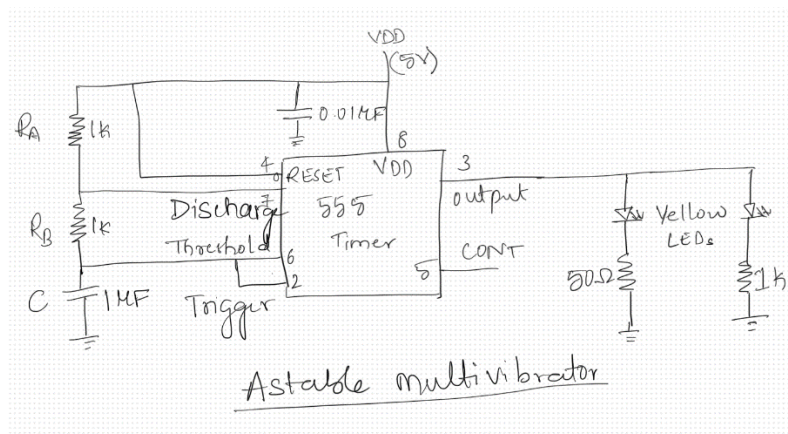 VDD
(5V)
RA 1K
0.01MF
8
4 RESET VDD 3
7
Discharge 555 output
RB 1K
Threshold Timer
6
CONT
5
2
Trigger
C 1MF
Yellow
LEDs
50Ω
1k
Astable multivibrator